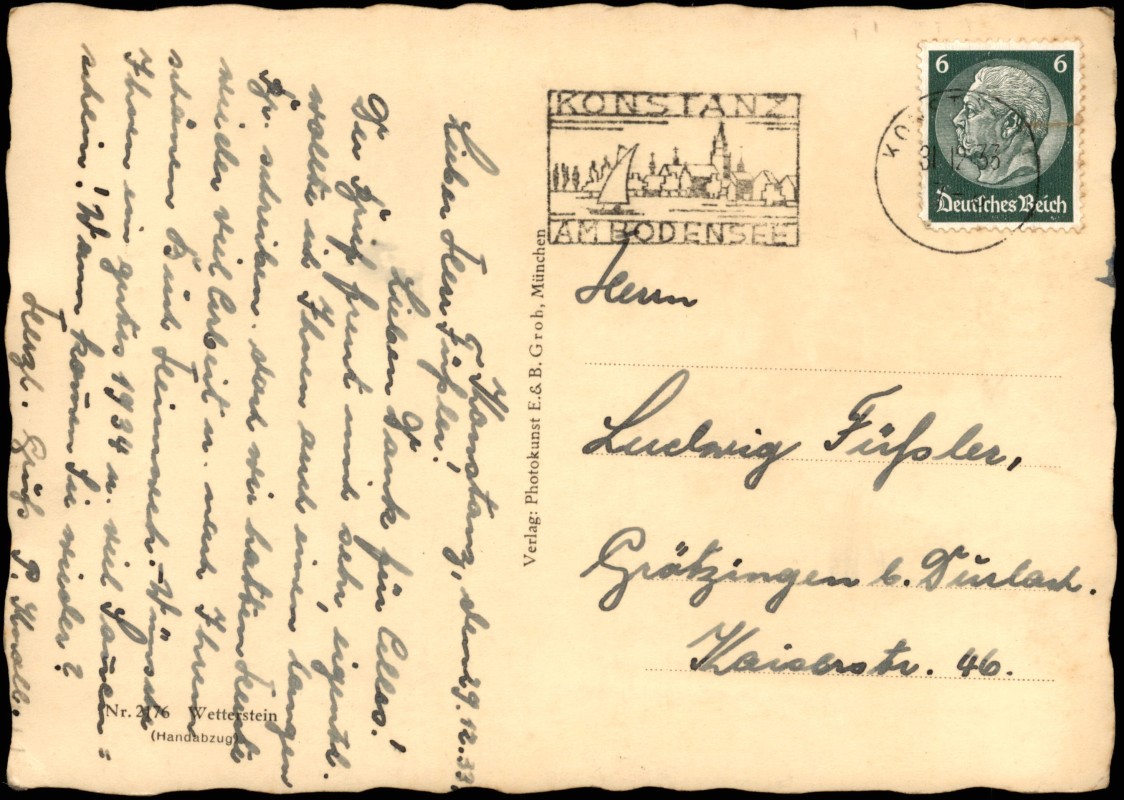 Konstanz, den 29.12.33.
Lieber Herr Füßler!
Lieben Dank für Alles!
Der Brief freut mich sehr, eigentl.
wollte ich Ihnen auch einen langen
Br. schreiben. Aber wir hatten heute
wieder viel Arbeit u. nach Ihrem
schönen Bild Heimweh. – Wünsche
Ihnen ein gutes 1934 u. viel Sonnen=
schein! Wann kommen Sie wieder?
Herzl. Grüße P.
Nr. 2176 Wetterstein
(Handabzug)
Verlag: Photokunst E. & B. Groh, München
KONSTANZ
AM BODENSEE
6 6
Deutsches Reich
31.12.33
Herrn
Ludwig Füßler,
Grötzingen b. Durlach.
Kaiserstr. 46.